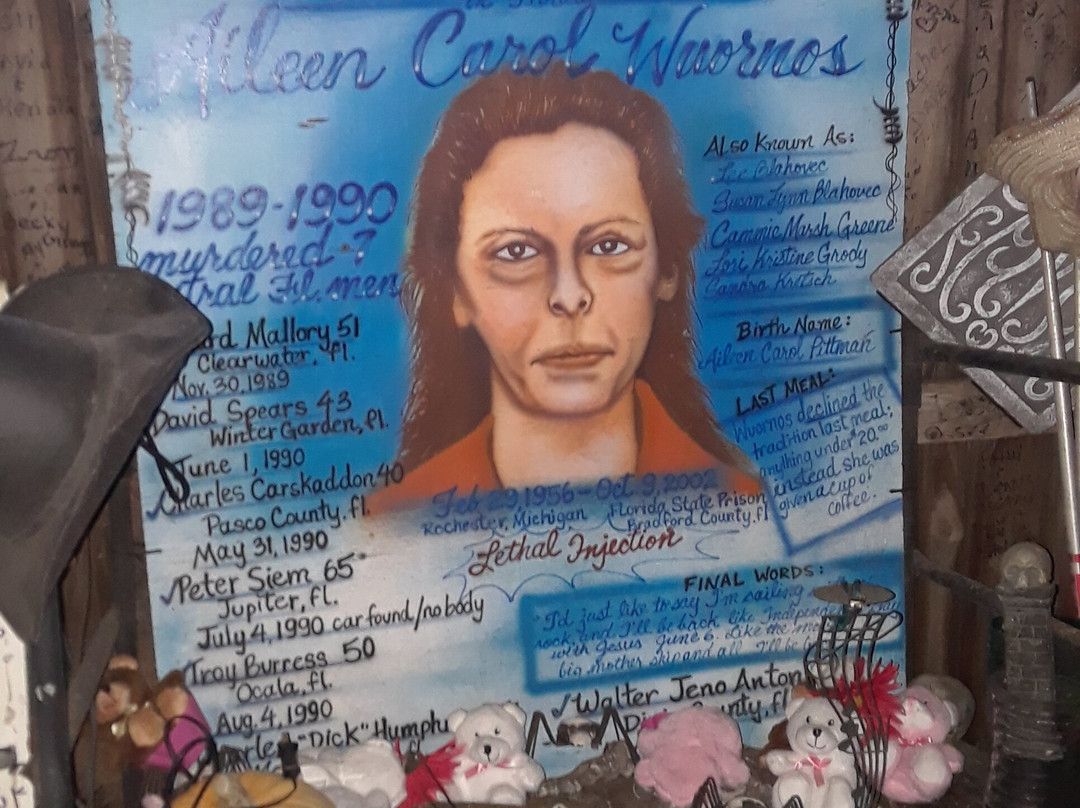 Aileen Carol Wuornos
1989-1990
murdered 7
tral Fl. men
rd Mallory 51
Clearwater, Fl.
Nov. 30, 1989
David Spears 43
Winter Garden, Fl.
June 1, 1990
Charles Carskaddon 40
Pasco County, Fl.
May 31, 1990
Peter Siem 65
Jupiter, Fl.
July 4, 1990 car found/no body
Troy Burress 50
Ocala, Fl.
Aug. 4, 1990
"Dick" Humph
Also Known As:
Lee Blahovec
Susan Lynn Blahovec
Cammie Marsh Greene
Lori Kristine Grody
Sandra Kretsch
Birth Name:
Aileen Carol Pittman
LAST MEAL:
Wuornos declined the
tradition last meal;
anything under 20.00
instead she was
given a cup of
coffee.
Feb 29, 1956 - Oct. 9, 2002
Rochester, Michigan
Florida State Prison
Bradford County, Fl
Lethal Injection
FINAL WORDS:
"I'd just like to say I'm sailing
rock, and I'll be back like Independe
with Jesus June 6. Like the
big mother ship and all. I'll be
Walter Jeno Anton
Di County, Fl